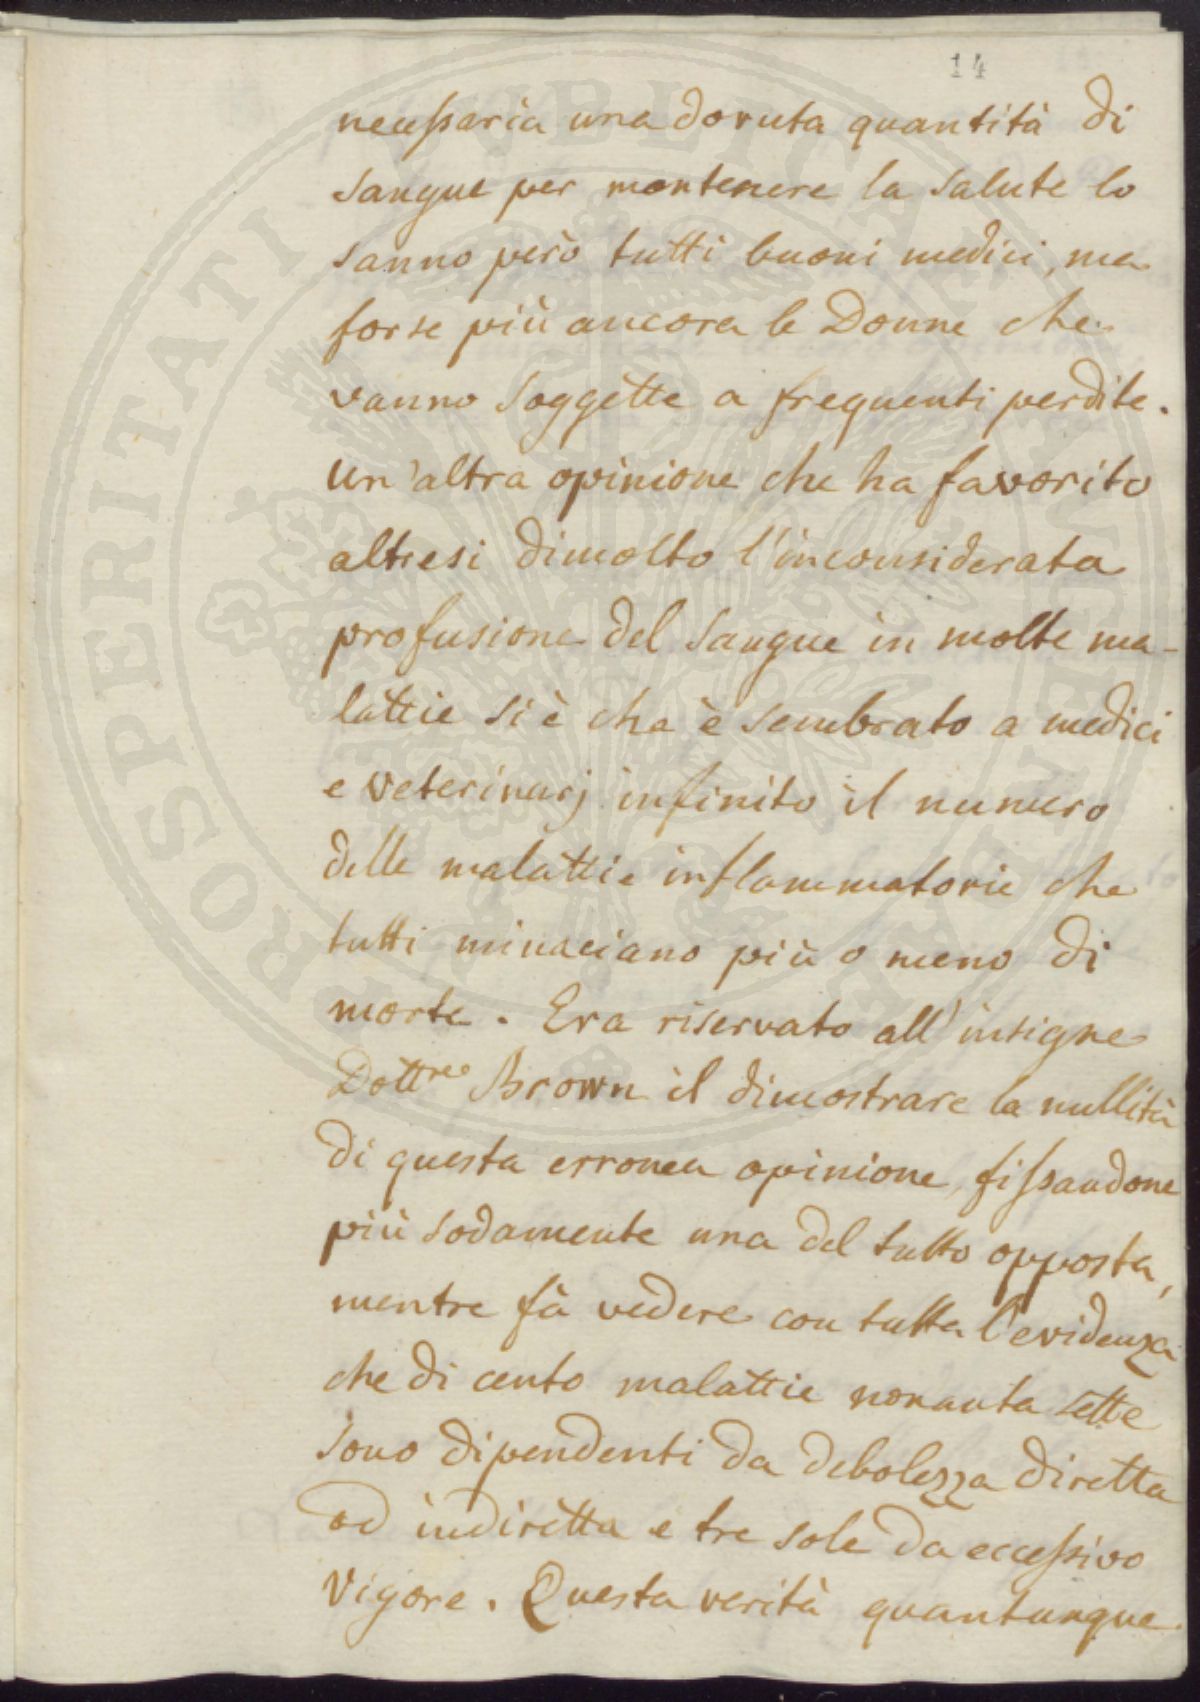 14
necessaria una dovuta quantità di
sangue per mantenere la salute lo
sanno però tutti buoni medici, ma
forse più ancora le Donne che
vanno soggette a frequenti perdite.
Un'altra opinione che ha favorito
altresi dimolto l'inconsiderata
profusione del sangue in molte ma-
lattie si è che è sembrato a medici
e veterinarj infinito il numero
delle malattie inflammatorie che
tutti minaciano più o meno di
morte. Era riservato all'insigne
Dottre Brown il dimostrare la nullità
di questa erronea opinione, fissandone
più sodamente una del tutto opposta,
mentre fà vedere con tutta l'evidenza
che di cento malattie nonanta sette
sono dipendenti da debolezza diretta
od indiretta e tre sole da eccessivo
vigore. Questa verità quantunque
PROSPERITATI PVBLICAE AVGENDAE